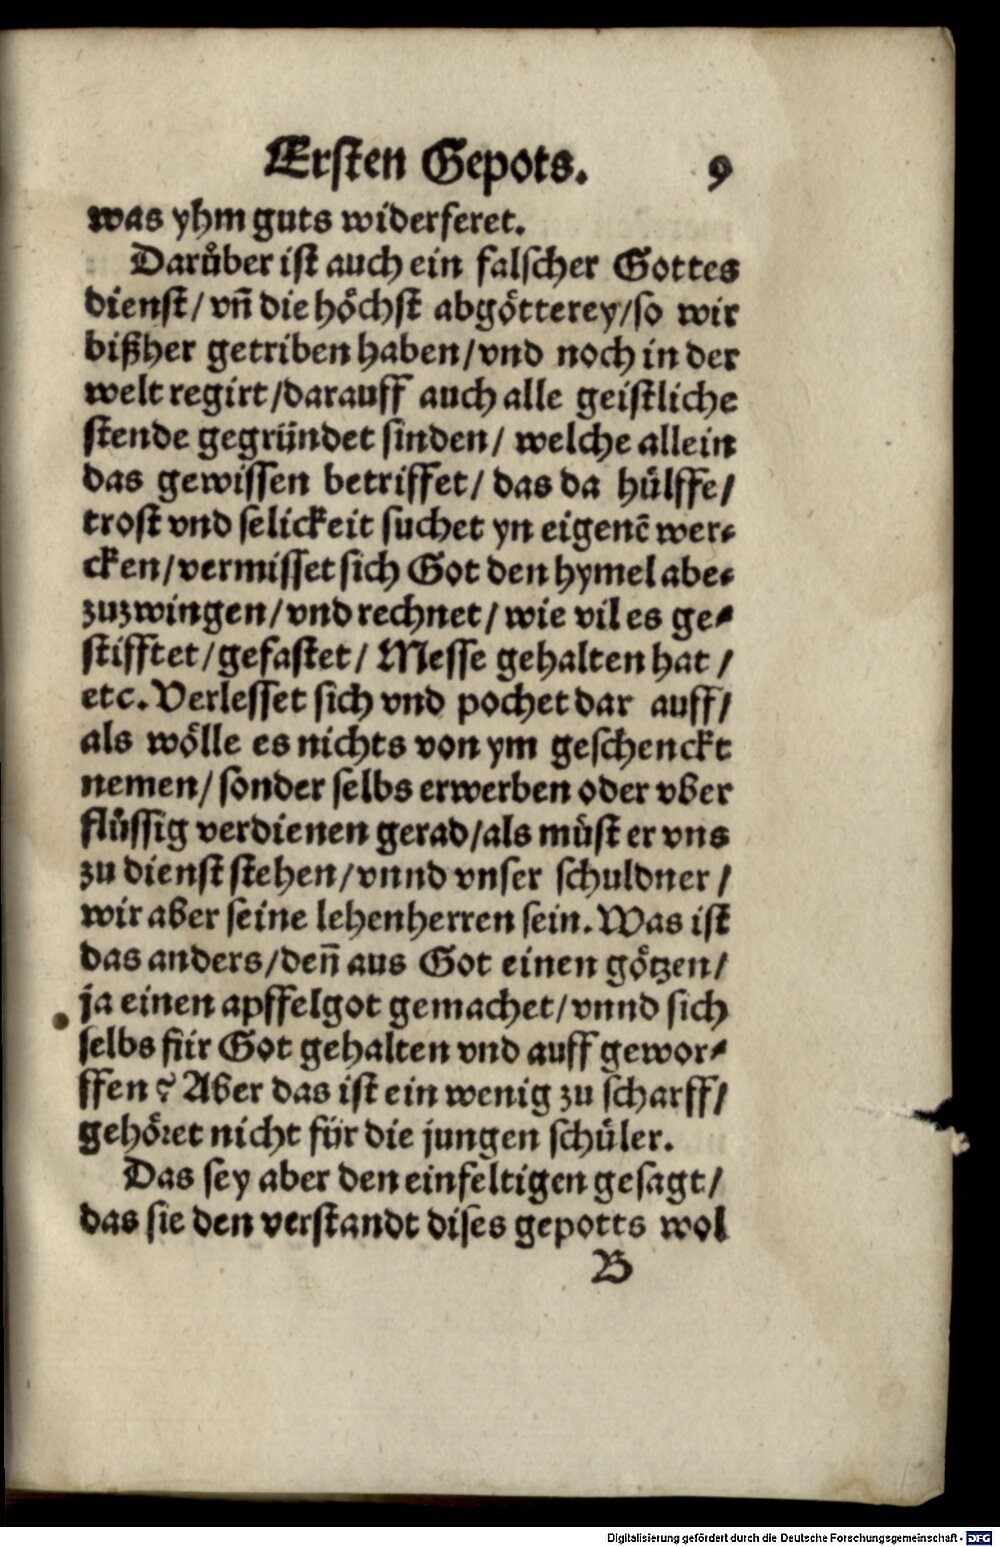 Ersten Gepots. 9
was yhm guts widerferet.
Darůber ist auch ein falscher Gottes
dienst/ vn̄ die hoͤchst abgoͤtterey/so wir
bißher getriben haben/vnd noch in der
welt regirt/darauff auch alle geistliche
stende gegründet sinden/ welche allein
das gewissen betriffet/ das da huͤlffe/
trost vnd selickeit suchet yn eigenē wer⸗
cken/vermisset sich Got den hymel abe⸗
zuzwingen/vnd rechnet/ wie vil es ge⸗
stifftet/gefastet/ Messe gehalten hat/
etc. Verlesset sich vnd pochet dar auff/
als woͤlle es nichts von ym geschenckt
nemen/ sonder selbs erwerben oder vber
fluͤssig verdienen gerad/als muͤst er vns
zu dienst stehen/vnnd vnser schuldner/
wir aber seine lehenherren sein. Was ist
das anders/den̄ aus Got einen goͤtzen/
ja einen apffelgot gemachet/vnnd sich
selbs für Got gehalten vnd auff gewor⸗
ffen? Aber das ist ein wenig zu scharff/
gehoͤret nicht für die jungen schuͤler.
Das sey aber den einfeltigen gesagt/
das sie den verstandt dises gepotts wol
B
Digitalisierung gefördert durch die Deutsche Forschungsgemeinschaft - DFG